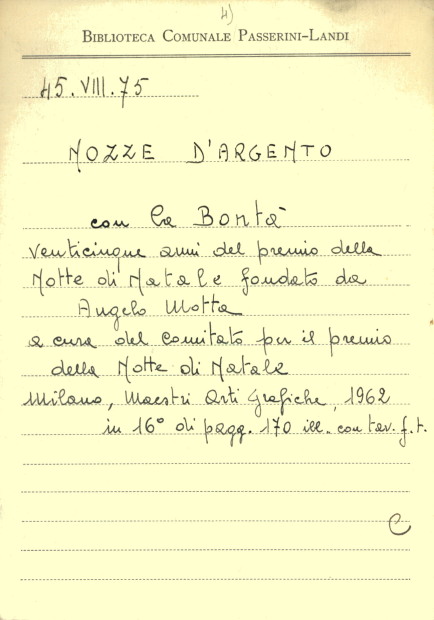 4)
BIBLIOTECA COMUNALE PASSERINI-LANDI
45.VIII.75
NOZZE D'ARGENTO
con la Bontà
venticinque anni del premio della
Notte di Natale fondato da
Angelo Motta
a cura del comitato per il premio
della Notte di Natale
Milano, Maestri Arti Grafiche, 1962
in 16° di pagg. 170 ill. con tav. f.t.
C